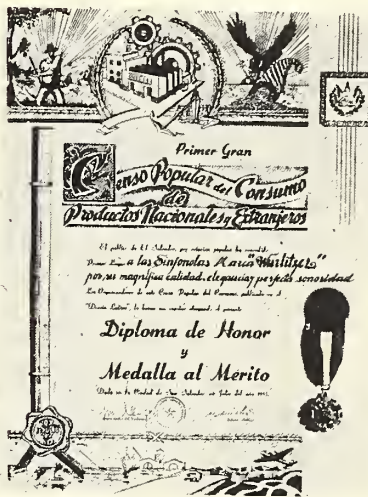 Primer Gran
Censo Popular del Consumo
de
Productos Nacionales y Extranjeros
El pueblo de El Salvador, por votación popular ha concedido
Primer Lugar a las Sinfonolas Marca "Wurlitzer"
por su magnífica calidad, elegancia y perfecta sonoridad
Los Organizadores de este Censo Popular del Consumo, publicado en el
"Diario Latino", le
Diploma de Honor
y
Medalla al Mérito
Dado en la Ciudad de San Salvador en Julio del año